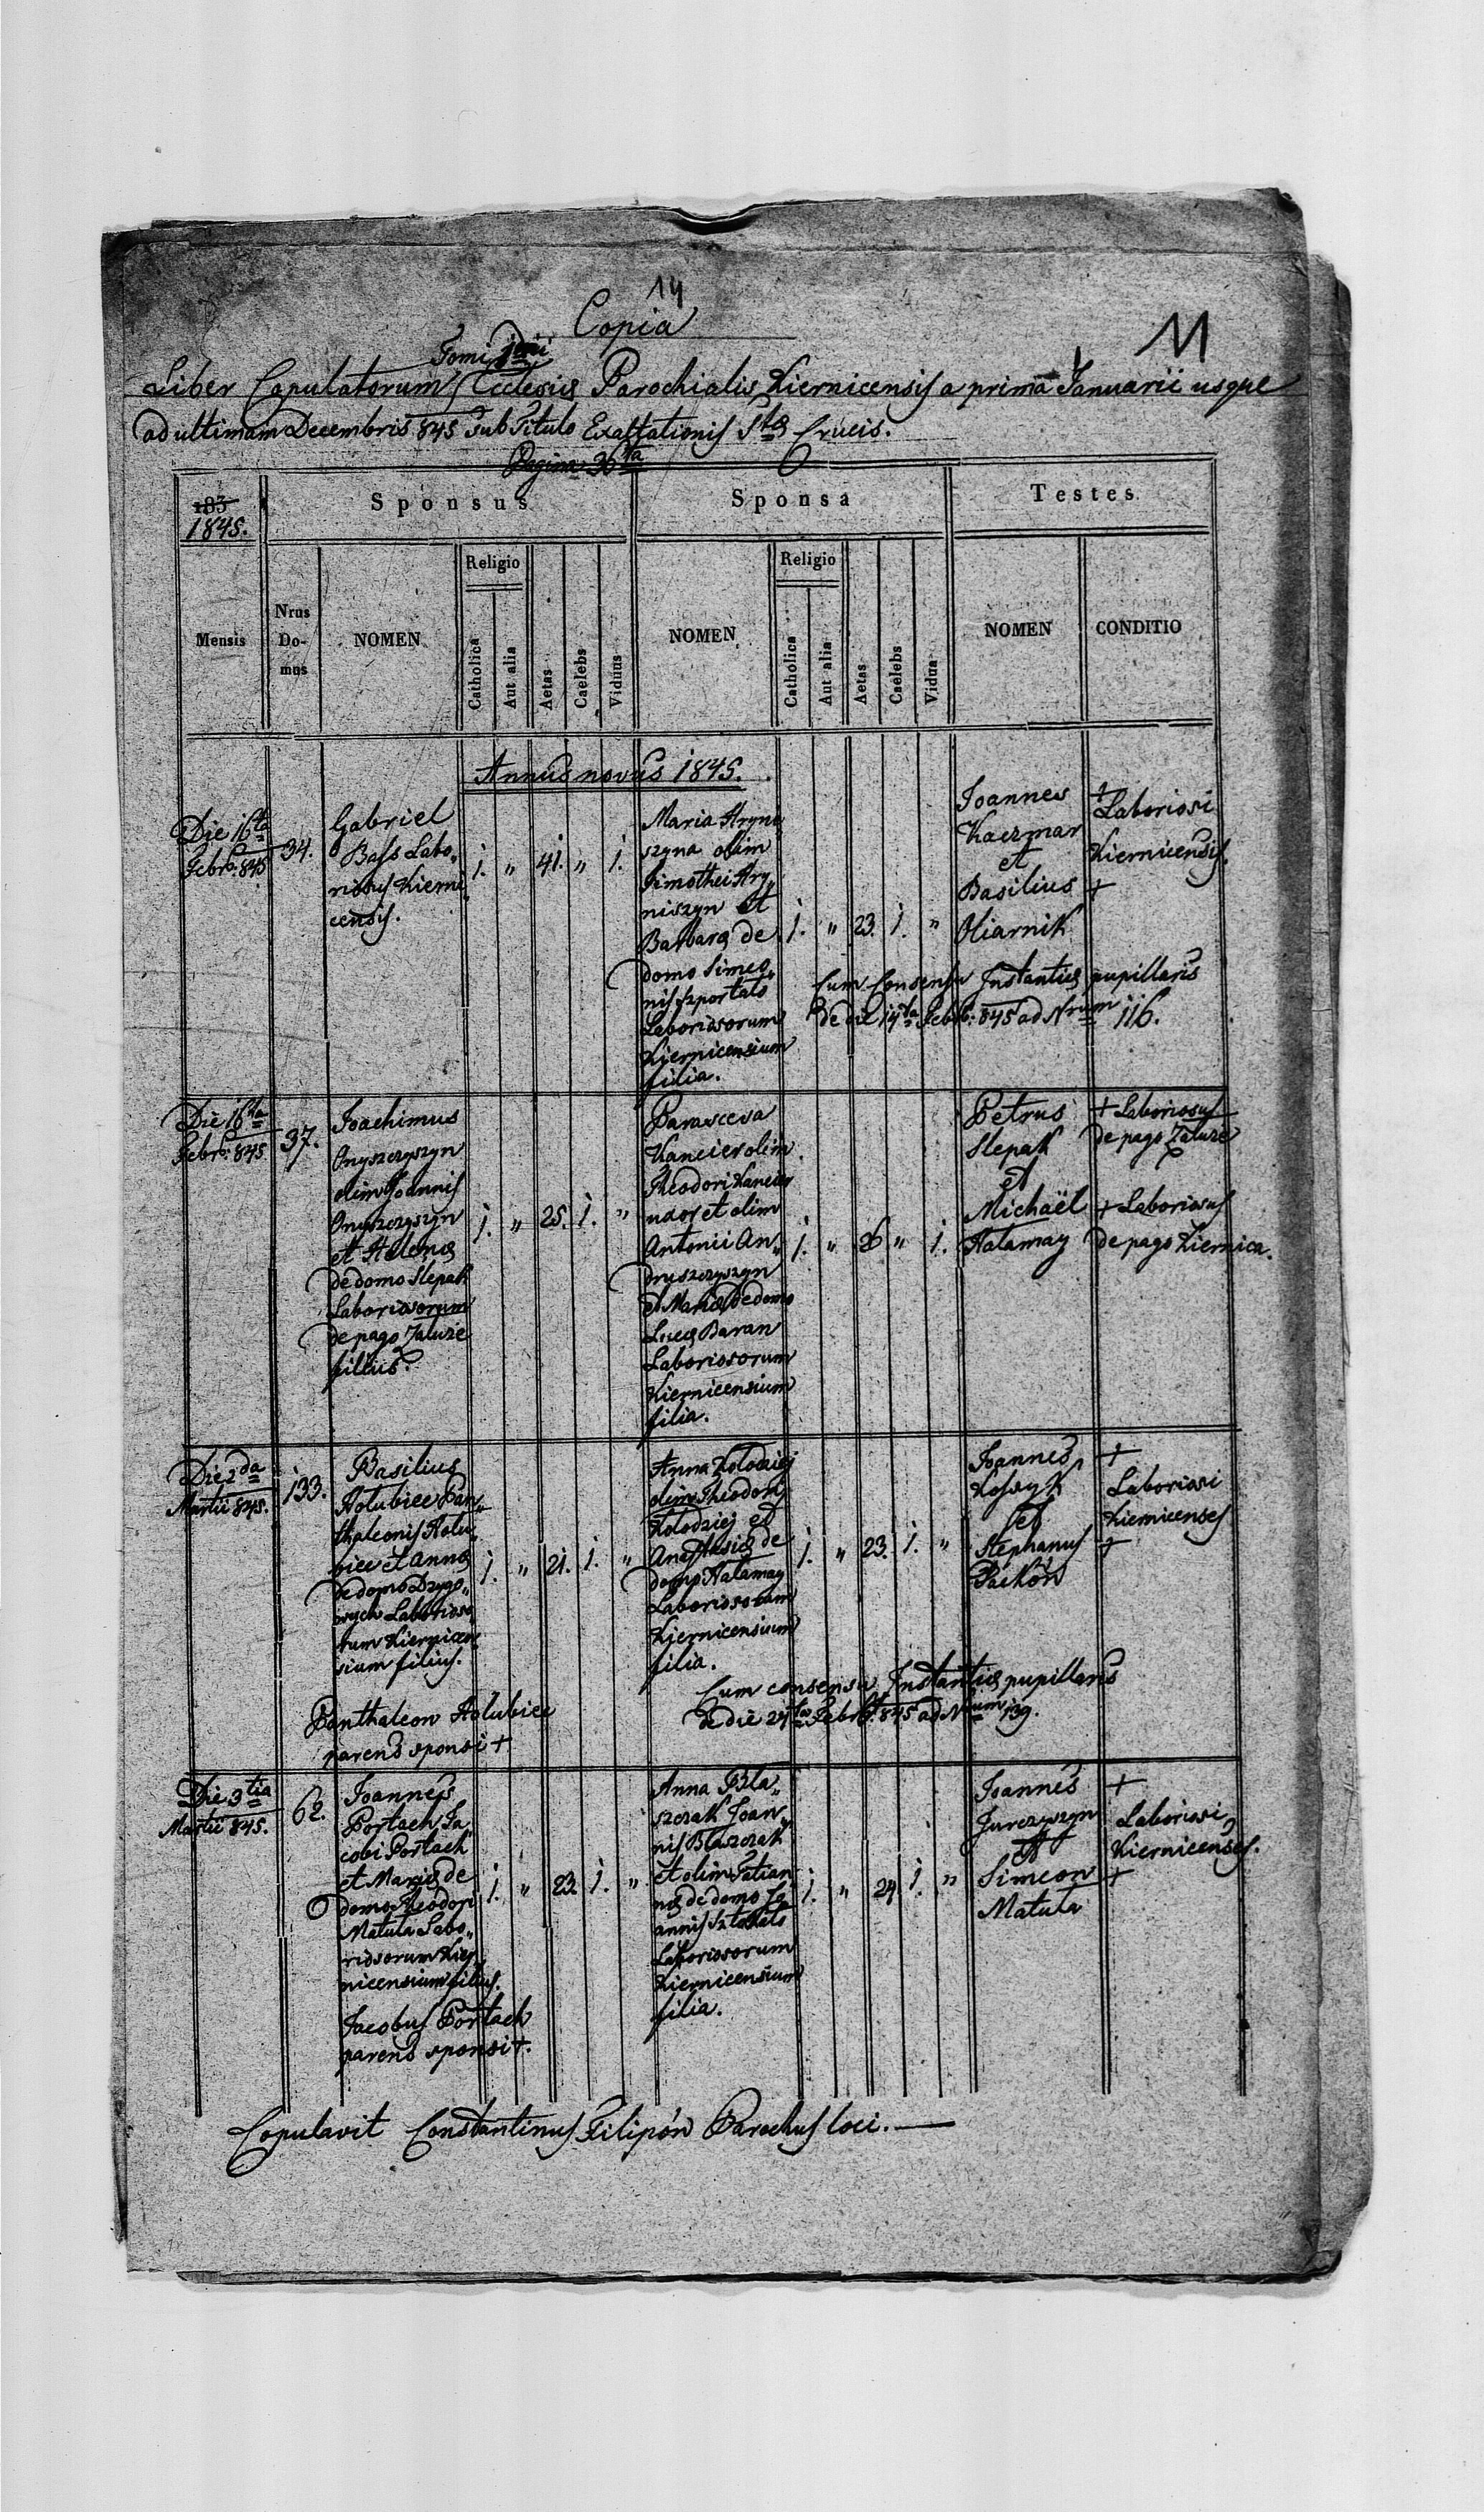 14
Copia
M
Tomi
Liber Copulatorum Ecclesiæ Parochialis Kiernicensis a prima Januarii usque
ad ultimam Decembris 845 sub Titulo Exaltationis Stæ Crucis.
Pagina 36ta
183
1845.
Sponsus
Sponsa
Testes
Mensis
Nrus Do-mus
NOMEN
Religio
Catholica
Aut alia
Aetas
Caelebs
Viduus
NOMEN
Religio
Catholica
Aut alia
Aetas
Caelebs
Vidua
NOMEN
CONDITIO
Annus novus 1845.
Die 16ta
Febr: 845
34.
Gabriel
Bass Labo„
riosus Kierni„
censis.
1. „ 41. „ 1.
Maria Hryni
szyna olim
Timothei Hry„
niszyn et
Barbaræ de
domo Simeo„
nis Szportalo
Laboriosorum
Kiernicensium
filia.
1. „ 23. 1. „
Joannes
Kaczmar
et
Basilius
Oliarnik
+
Laboriosi
Kiernicenses.
+
Cum Consensu Instantiæ pupillaris
de die 14ta Febr: 845 ad Nrum 116.
Die 16ta
Febr: 845
37.
Joachimus
Onyszczyszyn
olim Joannis
Onyszczyszyn
et Helenæ
de domo Slepak
Laboriosorum
de pago Zaluże
filius.
1. „ 25. 1. „
Parasceva
Kancier olim
Theodori Kancier
uxor et olim
Antonii An„
druszczyszyn
et Mariæ de domo
Lucæ Baran
Laboriosorum
Kiernicensium
filia.
1. „ 26 „ 1.
Petrus
Slepak
et
Michaël
Halamay
+ Laboriosus
de pago Zaluże
+ Laboriosus
de pago Kiernica.
Die 2da
Martii 845.
133.
Basilius
Holubiec Pan„
thaleonis Holu„
biec et Annæ
de domo Dzygo„
wych Laborioso„
rum Kiernicen„
sium filius.
1. „ 21. 1. „
Anna Kolodziej
olim Theodori
Kolodziej et
Anastasiæ de
domo Halamay
Laboriosorum
Kiernicensium
filia.
1. „ 23. 1. „
Joannes
Kossyk
et
Stephanus
Packon
+
Laboriosi
Kiernicenses
+
Cum consensu Instantiæ pupillaris
de die 27ta Febr: 845 ad Nrum 139.
Panthaleon Holubiec
parens sponsi +
Die 3tia
Martii 845.
62.
Joannes
Portach Ja„
cobi Portach
et Mariæ de
domo Theodori
Matula Labo„
riosorum Kier„
nicensium filius.
1. „ 23. 1. „
Anna Bla„
szczak Joan„
nis Blaszczak
et olim Tatian„
næ de domo Jo„
annis Sztokalo
Laboriosorum
Kiernicensium
filia.
1. „ 24 1. „
Joannes
Jurczyszyn
et
Simeon
Matula
+
Laboriosi
Kiernicenses.
+
Jacobus Portach
parens sponsi +.
Copulavit Constantinus Filipón Parochus loci.—